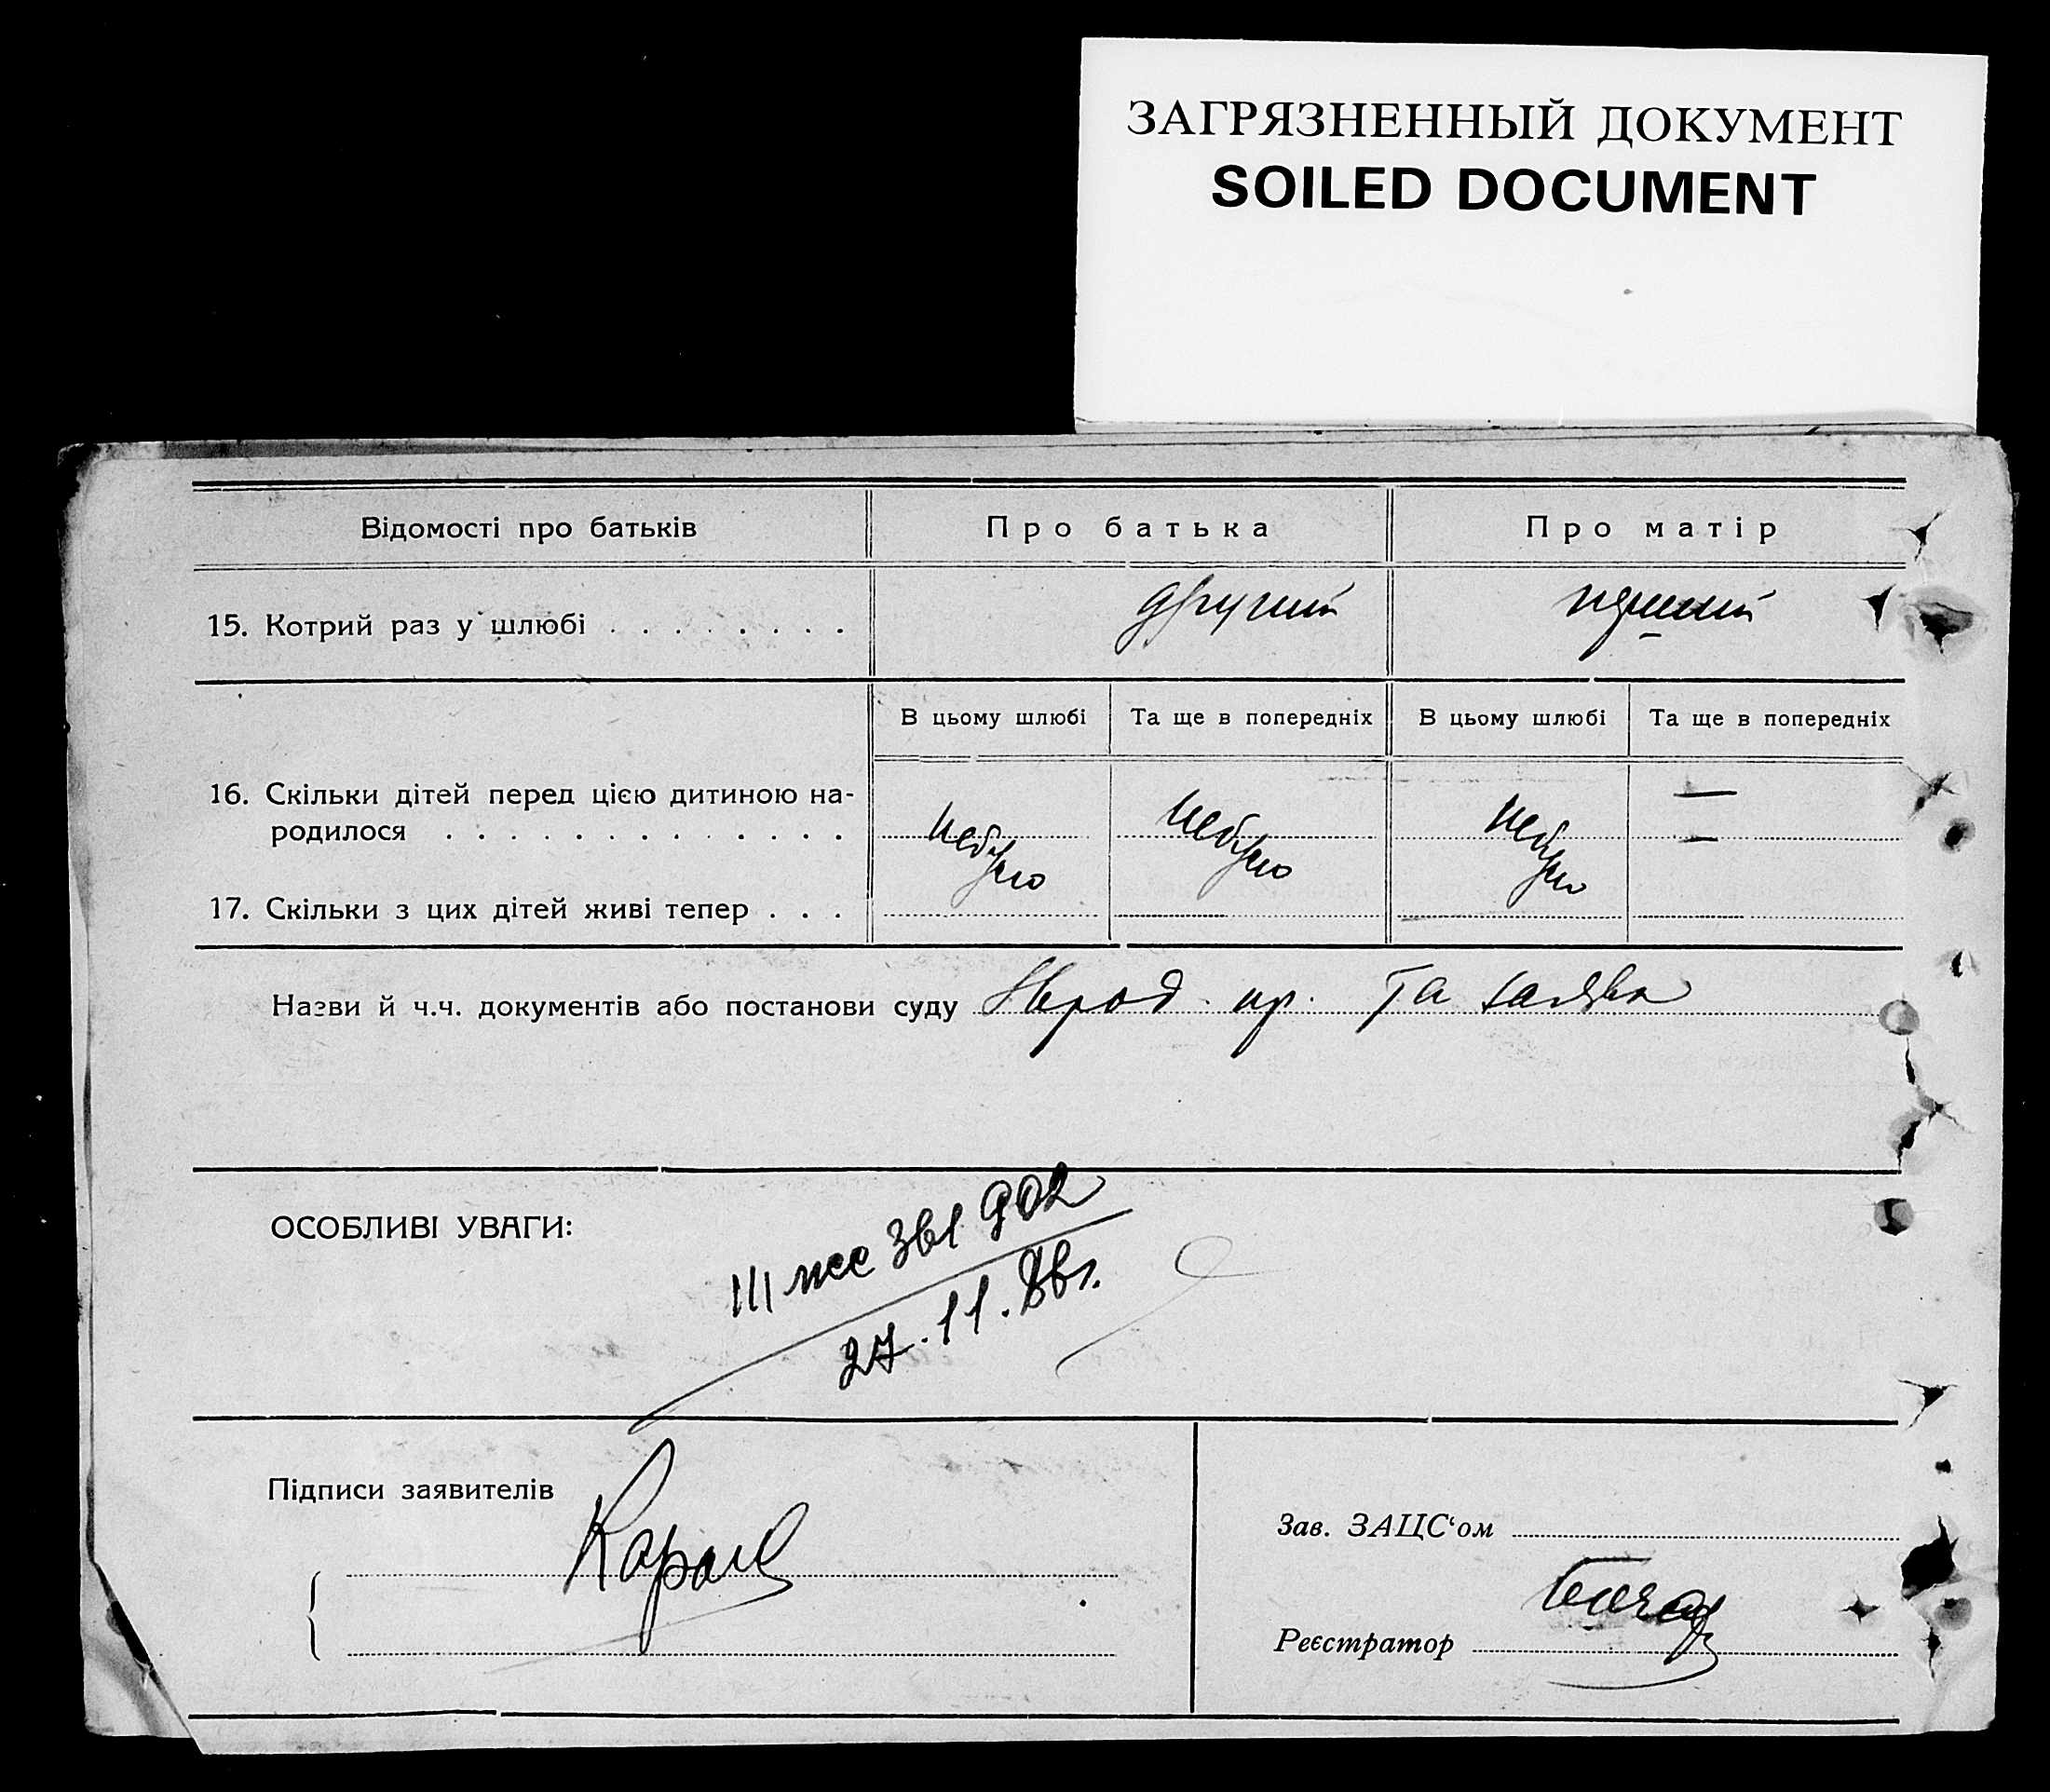 ЗАГРЯЗНЕННЫЙ ДОКУМЕНТ
SOILED DOCUMENT
Відомості про батьків
Про батька
Про матір
15. Котрий раз у шлюбі
другий
перший
В цьому шлюбі
Та ще в попередніх
В цьому шлюбі
Та ще в попередніх
16. Скільки дітей перед цією дитиною на-
родилося
небуло
небуло
небуло
—
—
17. Скільки з цих дітей живі тепер
Назви й ч.ч. документів або постанови суду
та заява
ОСОБЛИВІ УВАГИ:
902
27.11.86г.
Підписи заявителів
Зав. ЗАЦС‘ом
Реєстратор